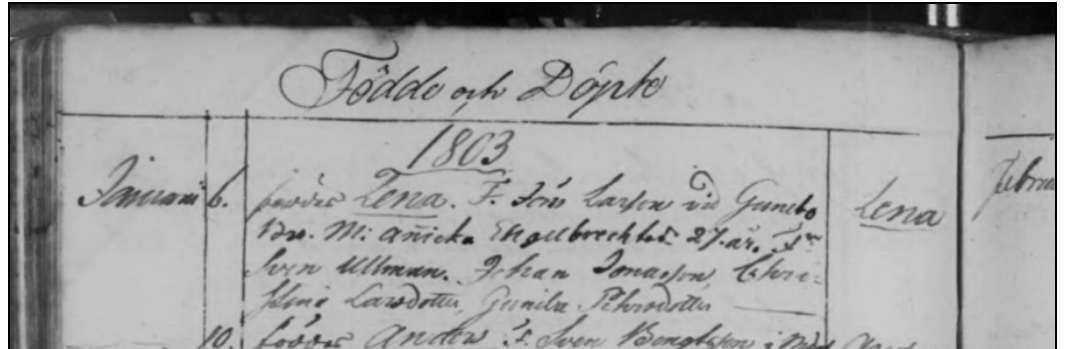 Födde och Döpte
1803
Januari 6. föddes Lena. F. Jöns Larson vid Gunebo Lena Februa
Br. M: Anicka Engelbrechtsd. 27. år.
Sven Ullman. Johan Jonasson, Chri-
stina Larsdotter, Gunila Pehrsdotter
10. föddes Anders F. Sven Bengtsson i